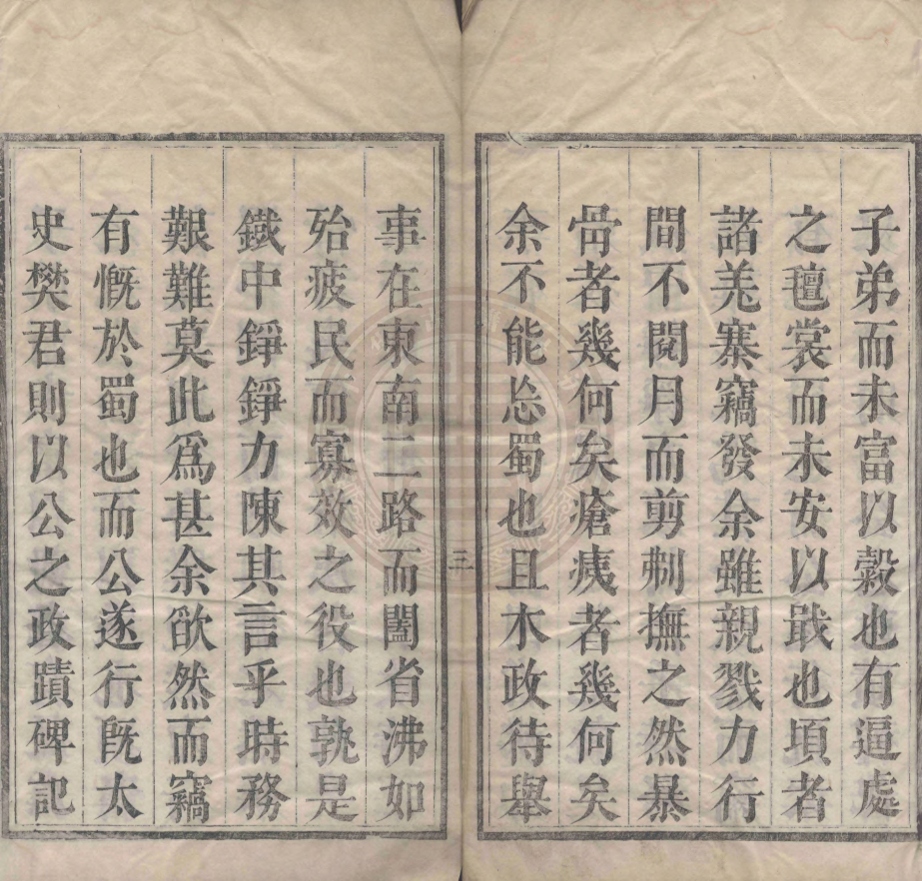 子弟而未富以糓也有逼處
之氊裳而未安以戢也頃者
諸羌寨竊發余雖親戮力行
間不閱月而剪剏撫之然暴
骨者幾何矣瘡痍者幾何矣
余不能忘蜀也且木政待舉
三
事在東南二路而闔省沸如
殆疲民而寡效之役也孰是
鐵中錚錚力陳其言乎時務
艱難莫此爲甚余欿然而竊
有慨於蜀也而公遂行旣太
史樊君則以公之政蹟碑記